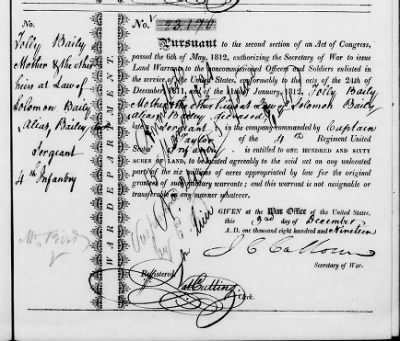 No. 23,190
Polly Baily
Mother & the other
heirs at Law of
Solomon Baily
Alias, Bailey
Sergeant
4th Infantry
WAR DEPARTMENT.
No. 23,190
Pursuant to the second section of an Act of Congress,
passed the 6th of May, 1812, authorizing the Secretary of War to issue
Land Warrants to the noncommissioned Officers and Soldiers enlisted in
the service of the United States, conformably to the acts of the 24th of
December, 1811, and of 11th January, 1812, Polly Baily
Mother & the other heirs at Law of Solomon Baily
alias Bailey deceased
late a Sergeant in the company commanded by Captain
Taylor of the 4th Regiment United
States' Infantry is entitled to ONE HUNDRED AND SIXTY
ACRES OF LAND, to be located agreeably to the said act on any unlocated
part of the six millions of acres appropriated by law for the original
grantees of such military warrants; and this warrant is not assignable or
transferable in any manner whatever.
GIVEN at the War Office of the United States,
this day of December
A.D. one thousand eight hundred and Nineteen
J C Calhoun
Secretary of War.
Registered
Cutting
Clerk.